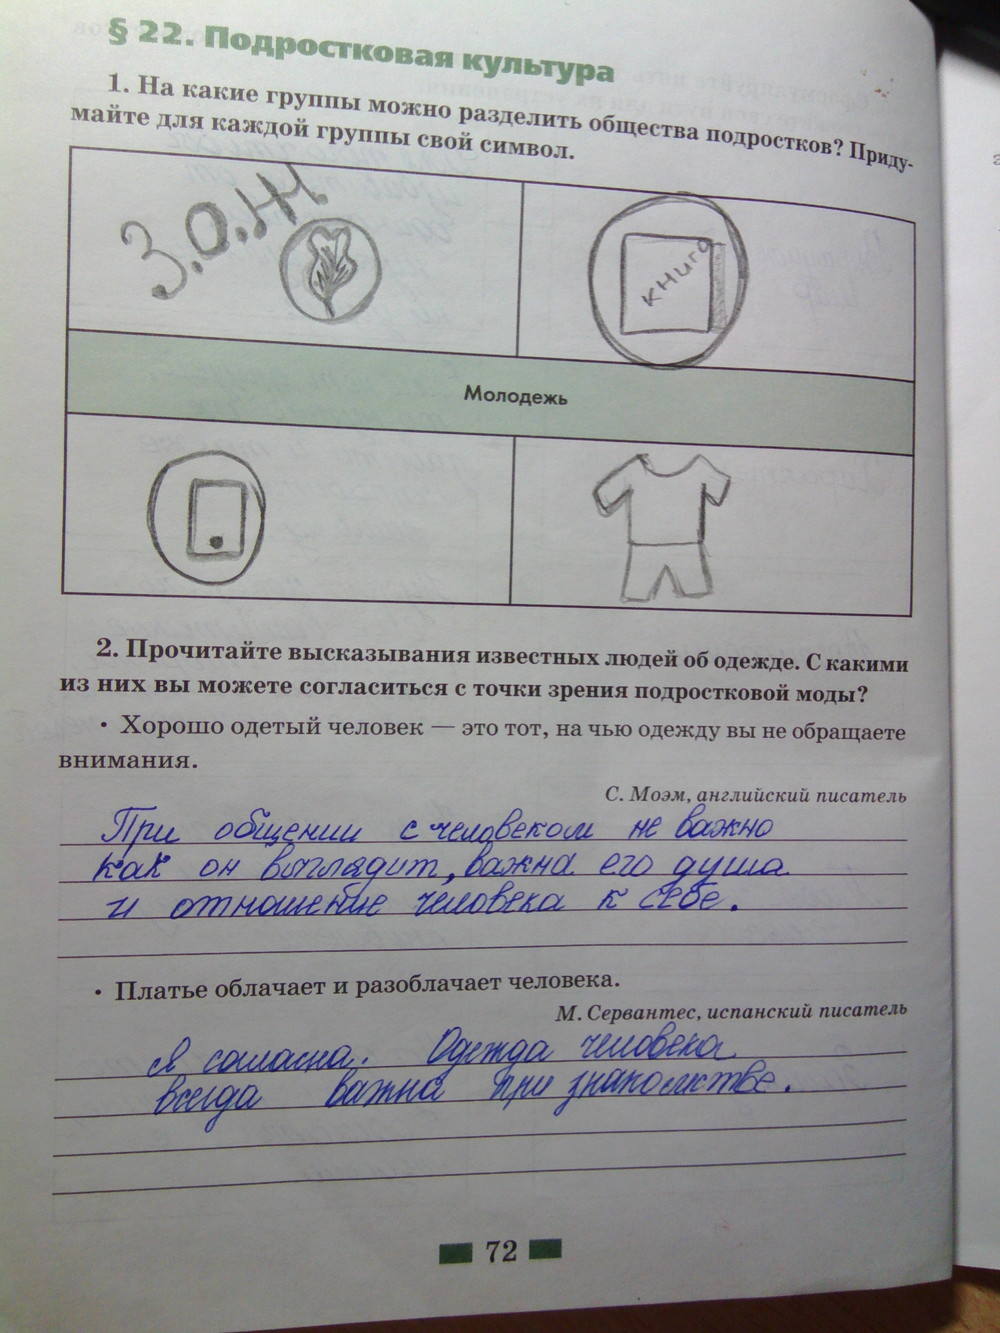 § 22. Подростковая культура
1. На какие группы можно разделить общества подростков? Приду-
майте для каждой группы свой символ.
З.О.Ж.
книга
Молодежь
2. Прочитайте высказывания известных людей об одежде. С какими
из них вы можете согласиться с точки зрения подростковой моды?
• Хорошо одетый человек — это тот, на чью одежду вы не обращаете
внимания.
С. Моэм, английский писатель
При общении с человеком не важно
как он выглядит, важна его душа
и отношение человека к себе.
• Платье облачает и разоблачает человека.
М. Сервантес, испанский писатель
Я согласна. Одежда человека
всегда важна при знакомстве.
72